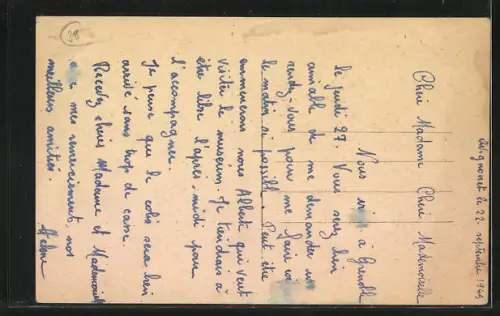 28
Avignonet le 22 septembre 1945
Chère Madame Chère Mademoiselle
Nous à Grenoble
le jeudi 27. Vous seriez bien
aimable de me demander un
rendez-vous pour me faire
le matin si possible. Peut être
emmènerons nous Alberte qui veut
visiter le muséum. Je tiendrais à
être libre l'après-midi pour
l'accompagner.
Je pense que le colis sera bien
arrivé sans trop de casse.
Recevez chères Madame et Mademoiselle
mes remerciements, nos
meilleures amitiés.